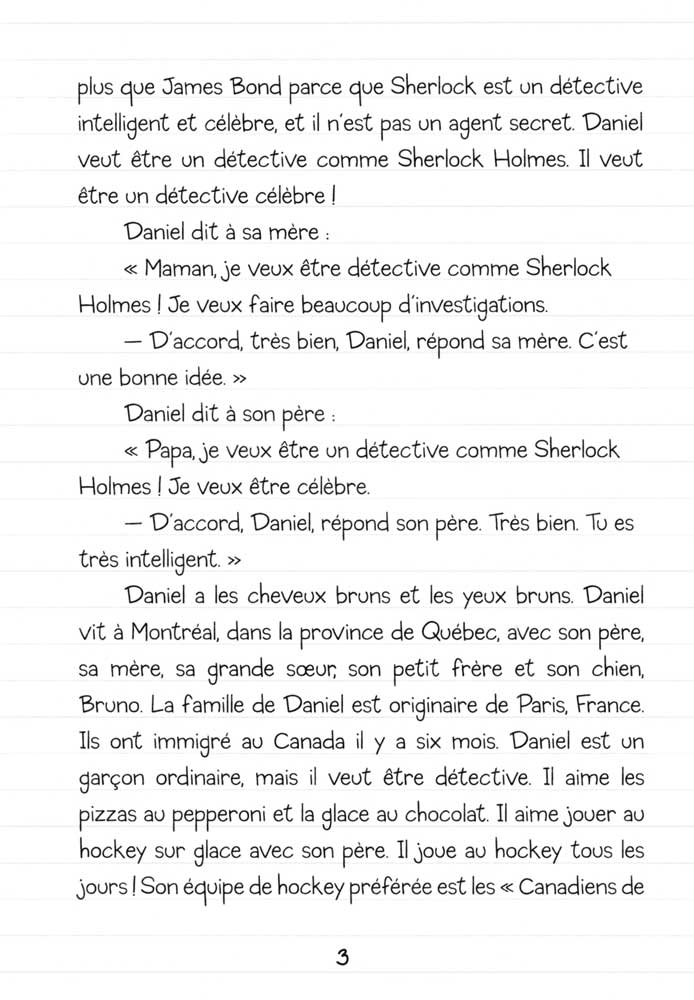 plus que James Bond parce que Sherlock est un détective
intelligent et célèbre, et il n'est pas un agent secret. Daniel
veut être un détective comme Sherlock Holmes. Il veut
être un détective célèbre !
Daniel dit à sa mère :
« Maman, je veux être détective comme Sherlock
Holmes ! Je veux faire beaucoup d'investigations.
— D'accord, très bien, Daniel, répond sa mère. C'est
une bonne idée. »
Daniel dit à son père :
« Papa, je veux être un détective comme Sherlock
Holmes ! Je veux être célèbre.
— D'accord, Daniel, répond son père. Très bien. Tu es
très intelligent. »
Daniel a les cheveux bruns et les yeux bruns. Daniel
vit à Montréal, dans la province de Québec, avec son père,
sa mère, sa grande sœur, son petit frère et son chien,
Bruno. La famille de Daniel est originaire de Paris, France.
Ils ont immigré au Canada il y a six mois. Daniel est un
garçon ordinaire, mais il veut être détective. Il aime les
pizzas au pepperoni et la glace au chocolat. Il aime jouer au
hockey sur glace avec son père. Il joue au hockey tous les
jours ! Son équipe de hockey préférée est les « Canadiens de
3